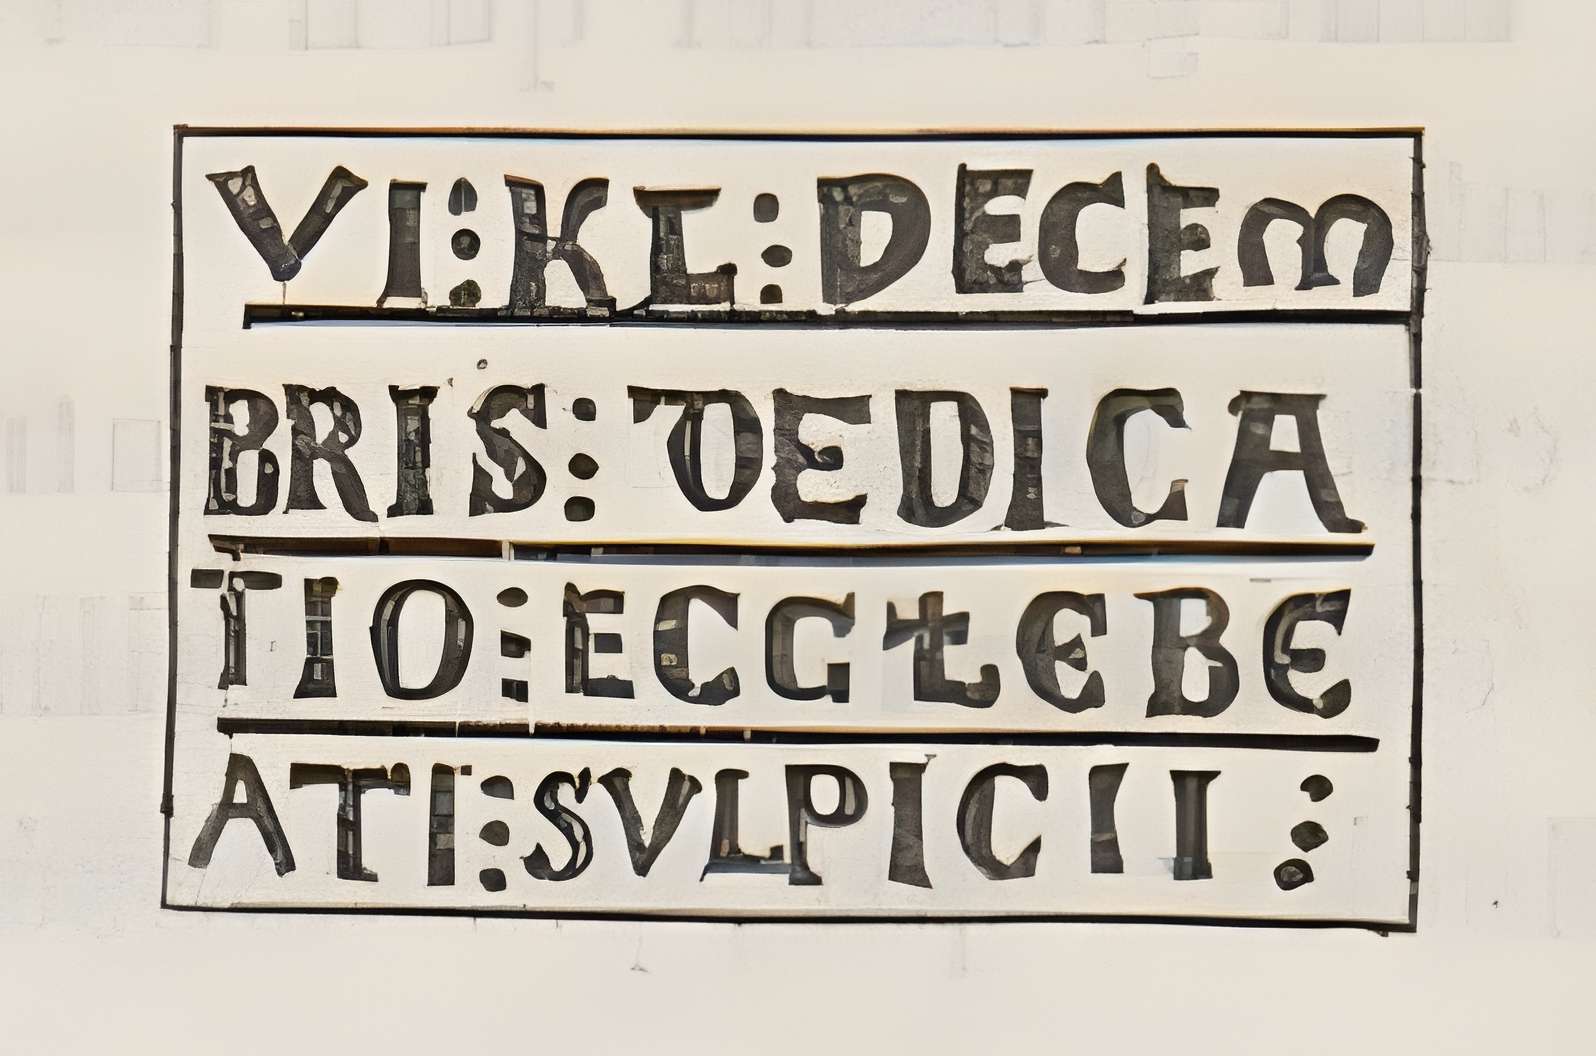 VI⁝KL⁝DECEM
BRIS⁝DEDICA
TIO⁝ECCŁEBE
ATI⁝SVLPICII⁝